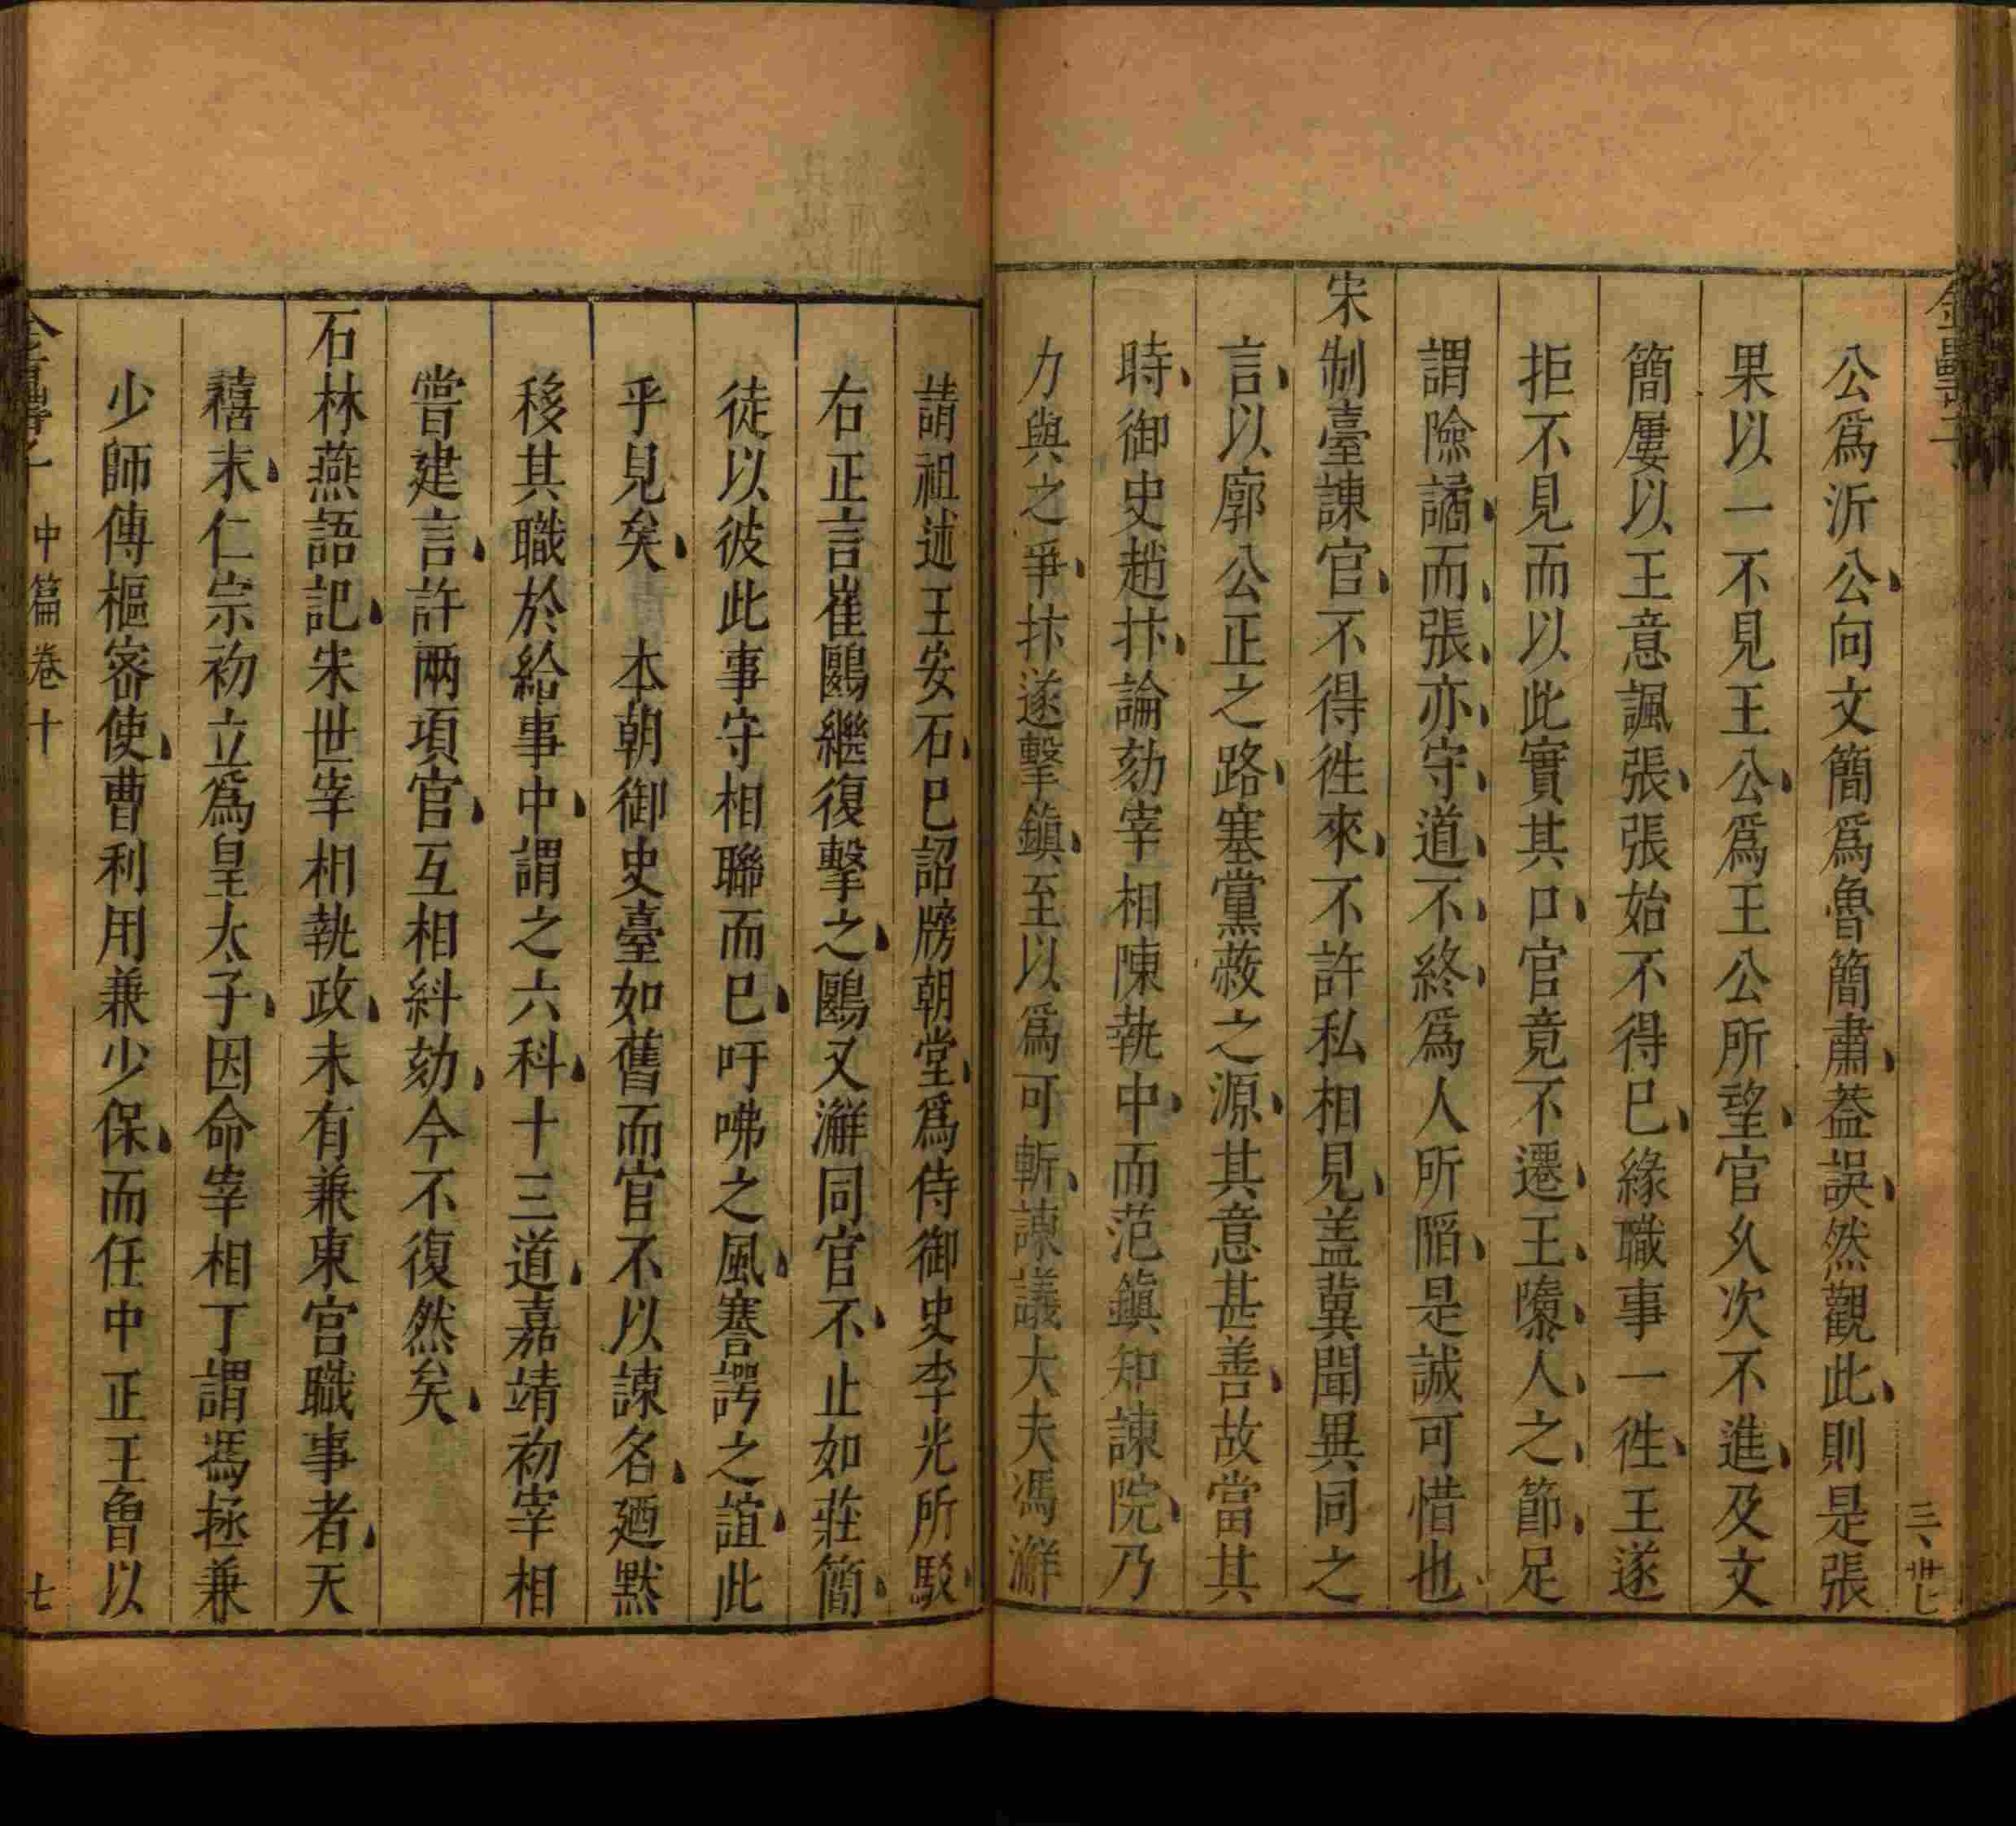 公爲沂公向文簡爲魯簡肅葢誤然觀此則是張
果以一不見王公爲王公所望官久次不進及文
簡屢以王意諷張張始不得已緣職事一徃王遂
拒不見而以此實其口官竟不遷王隳人之節足
謂險譎而張亦守道不終爲人所陷是誠可惜也
宋制臺諫官不得徃來不許私相見盖冀聞異同之
言以廓公正之路塞黨蔽之源其意甚善故當其
時御史趙抃論劾宰相陳執中而范鎭知諫院乃
力與之爭抃遂擊鎭至以爲可斬諫議大夫馮澥
請祖述王安石已詔牓朝堂爲侍御史李光所駁
右正言崔鷗繼復擊之鷗又澥同官不止如莊簡
徒以彼此事守相聯而已吁咈之風謇諤之誼此
乎見矣 本朝御史臺如舊而官不以諫名廼黙
移其職於給事中謂之六科十三道嘉靖初宰相
嘗建言許兩項官互相糾劾今不復然矣
石林燕語記宋世宰相執政未有兼東宮職事者天
禧末仁宗初立爲皇太子因命宰相丁謂馮拯兼
少師傅樞密使曹利用兼少保而任中正王曾以
中篇卷十
七